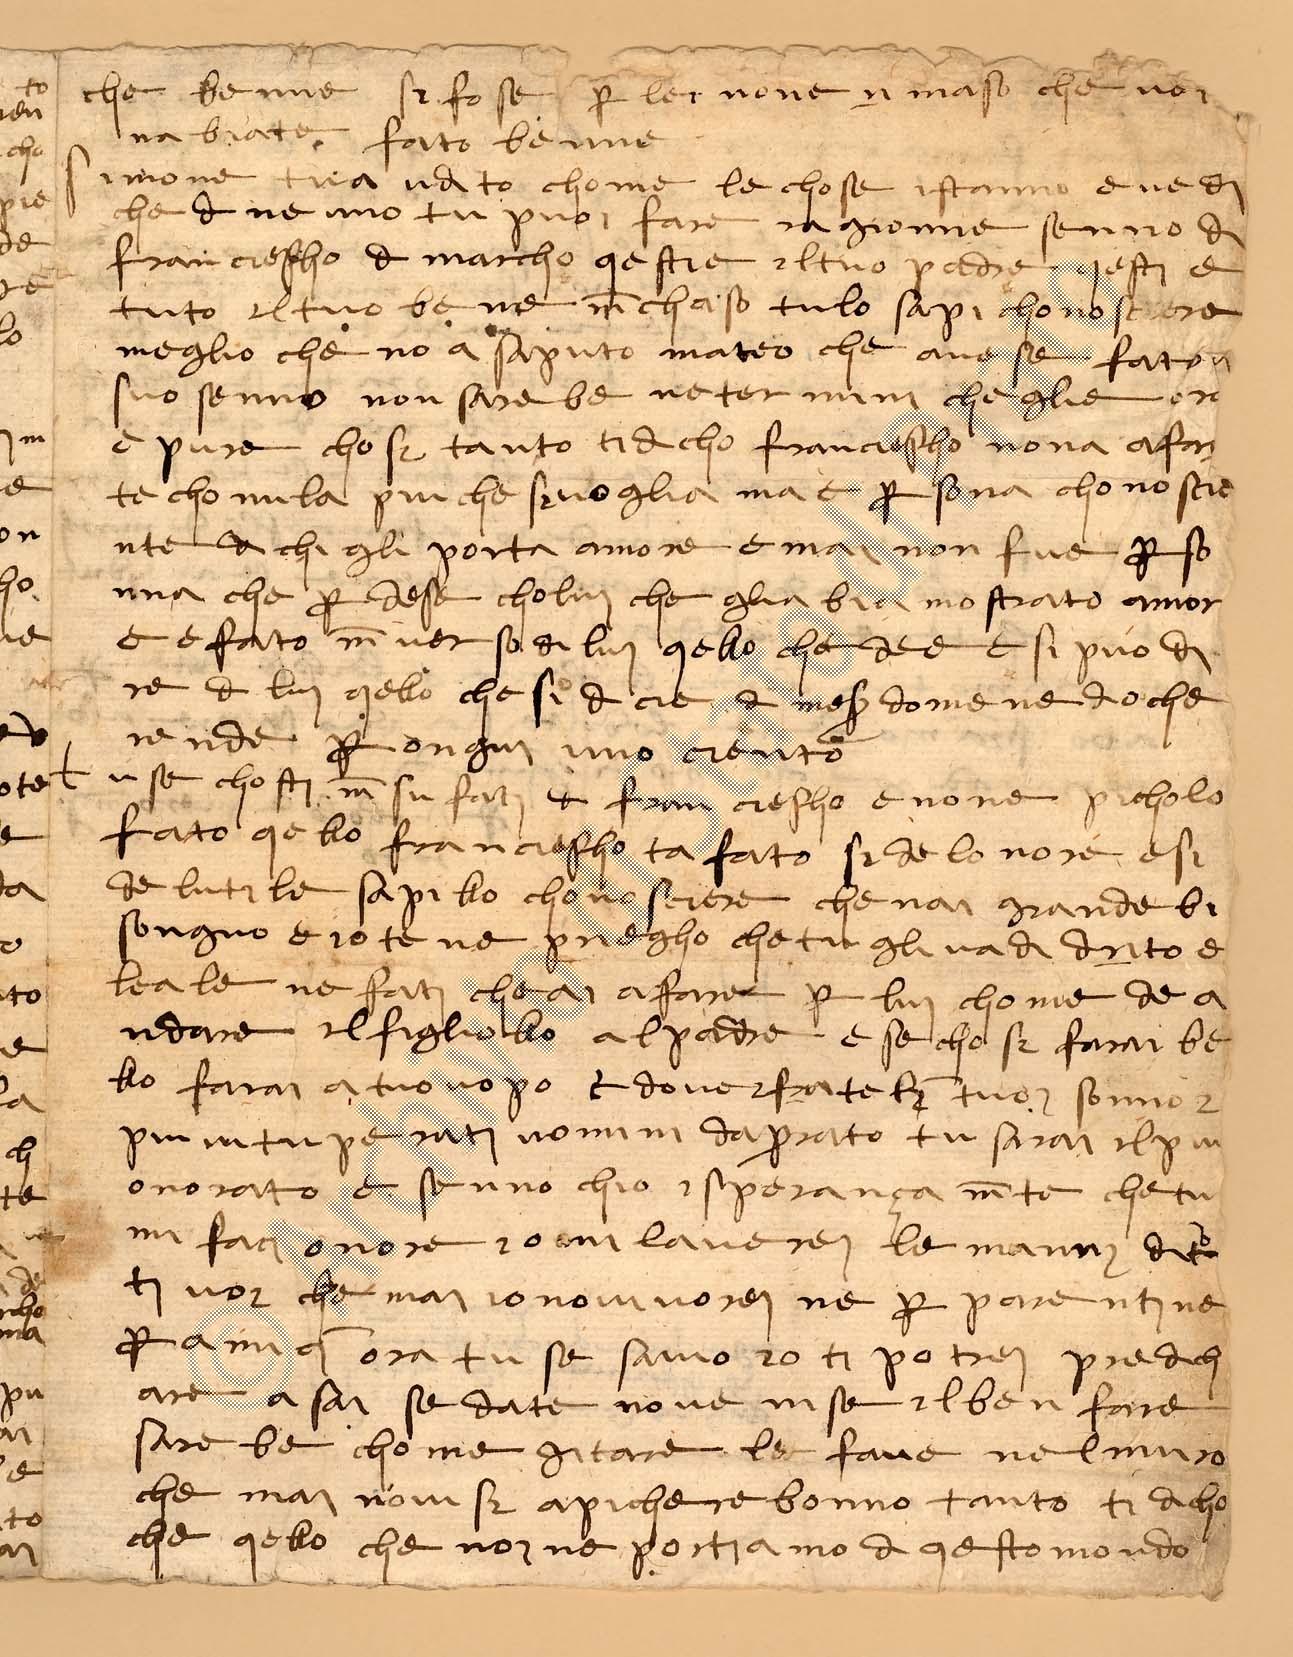 che benne si fose per lei none rimaso che voi
n abiate fato benne
Simone tu ai udito chome le chose istanno e vedi
che di neuno tu puoi fare ragionne senno di
Franciescho di Marcho qesti e il tuo padre qesti e
tuto il tuo bene in chaso tu lo sapi chonosciere
meglio che no a saputo Mateo che avese fato a
suo senno non sarebe ne termini che gli e ora
e pure chosi tanto ti dicho Franciescho non a a far
te cho nula piu che si voglia ma e persona chonoscie
nte di chi gli porta amore e mai non fue perso
nna che perdese cholui che gli abia mostrato amor
e e fato inverso di lui qello che dee e si puo di
re di lui qello che si dicie di meser domenedio che
rende per ongni uno ciento
tu se chosti in su fati di Franciescho e none picholo
fato qello Francescho t a fato si de l onore e si
de l utile sapillo chonosciere che n ai grande bi
songno e io te ne priegho che tu gli vadi drito e
leale ne fati che ai a ffare per lui chome de a
ndare il figliollo al padre e se chosi farai be
llo farai a tuo uopo e dove i frategli tuoi sonno i
piu vituperati uomini da Prato tu sarai il piu
onorato e senno ch io isperança in te che tu
mi faci onore io mi laverei le mani di te
ti voi che mai io non vi vorei ne per parenti ne
per amici ora tu se savio io ti potrei predich
are asai se da te none vinse il ben fare
sarebe chome gitare le fave nel muro
che mai non vi si apicherebonno tanto ti dicho
che qello che noi ne portiamo di qesto mondo